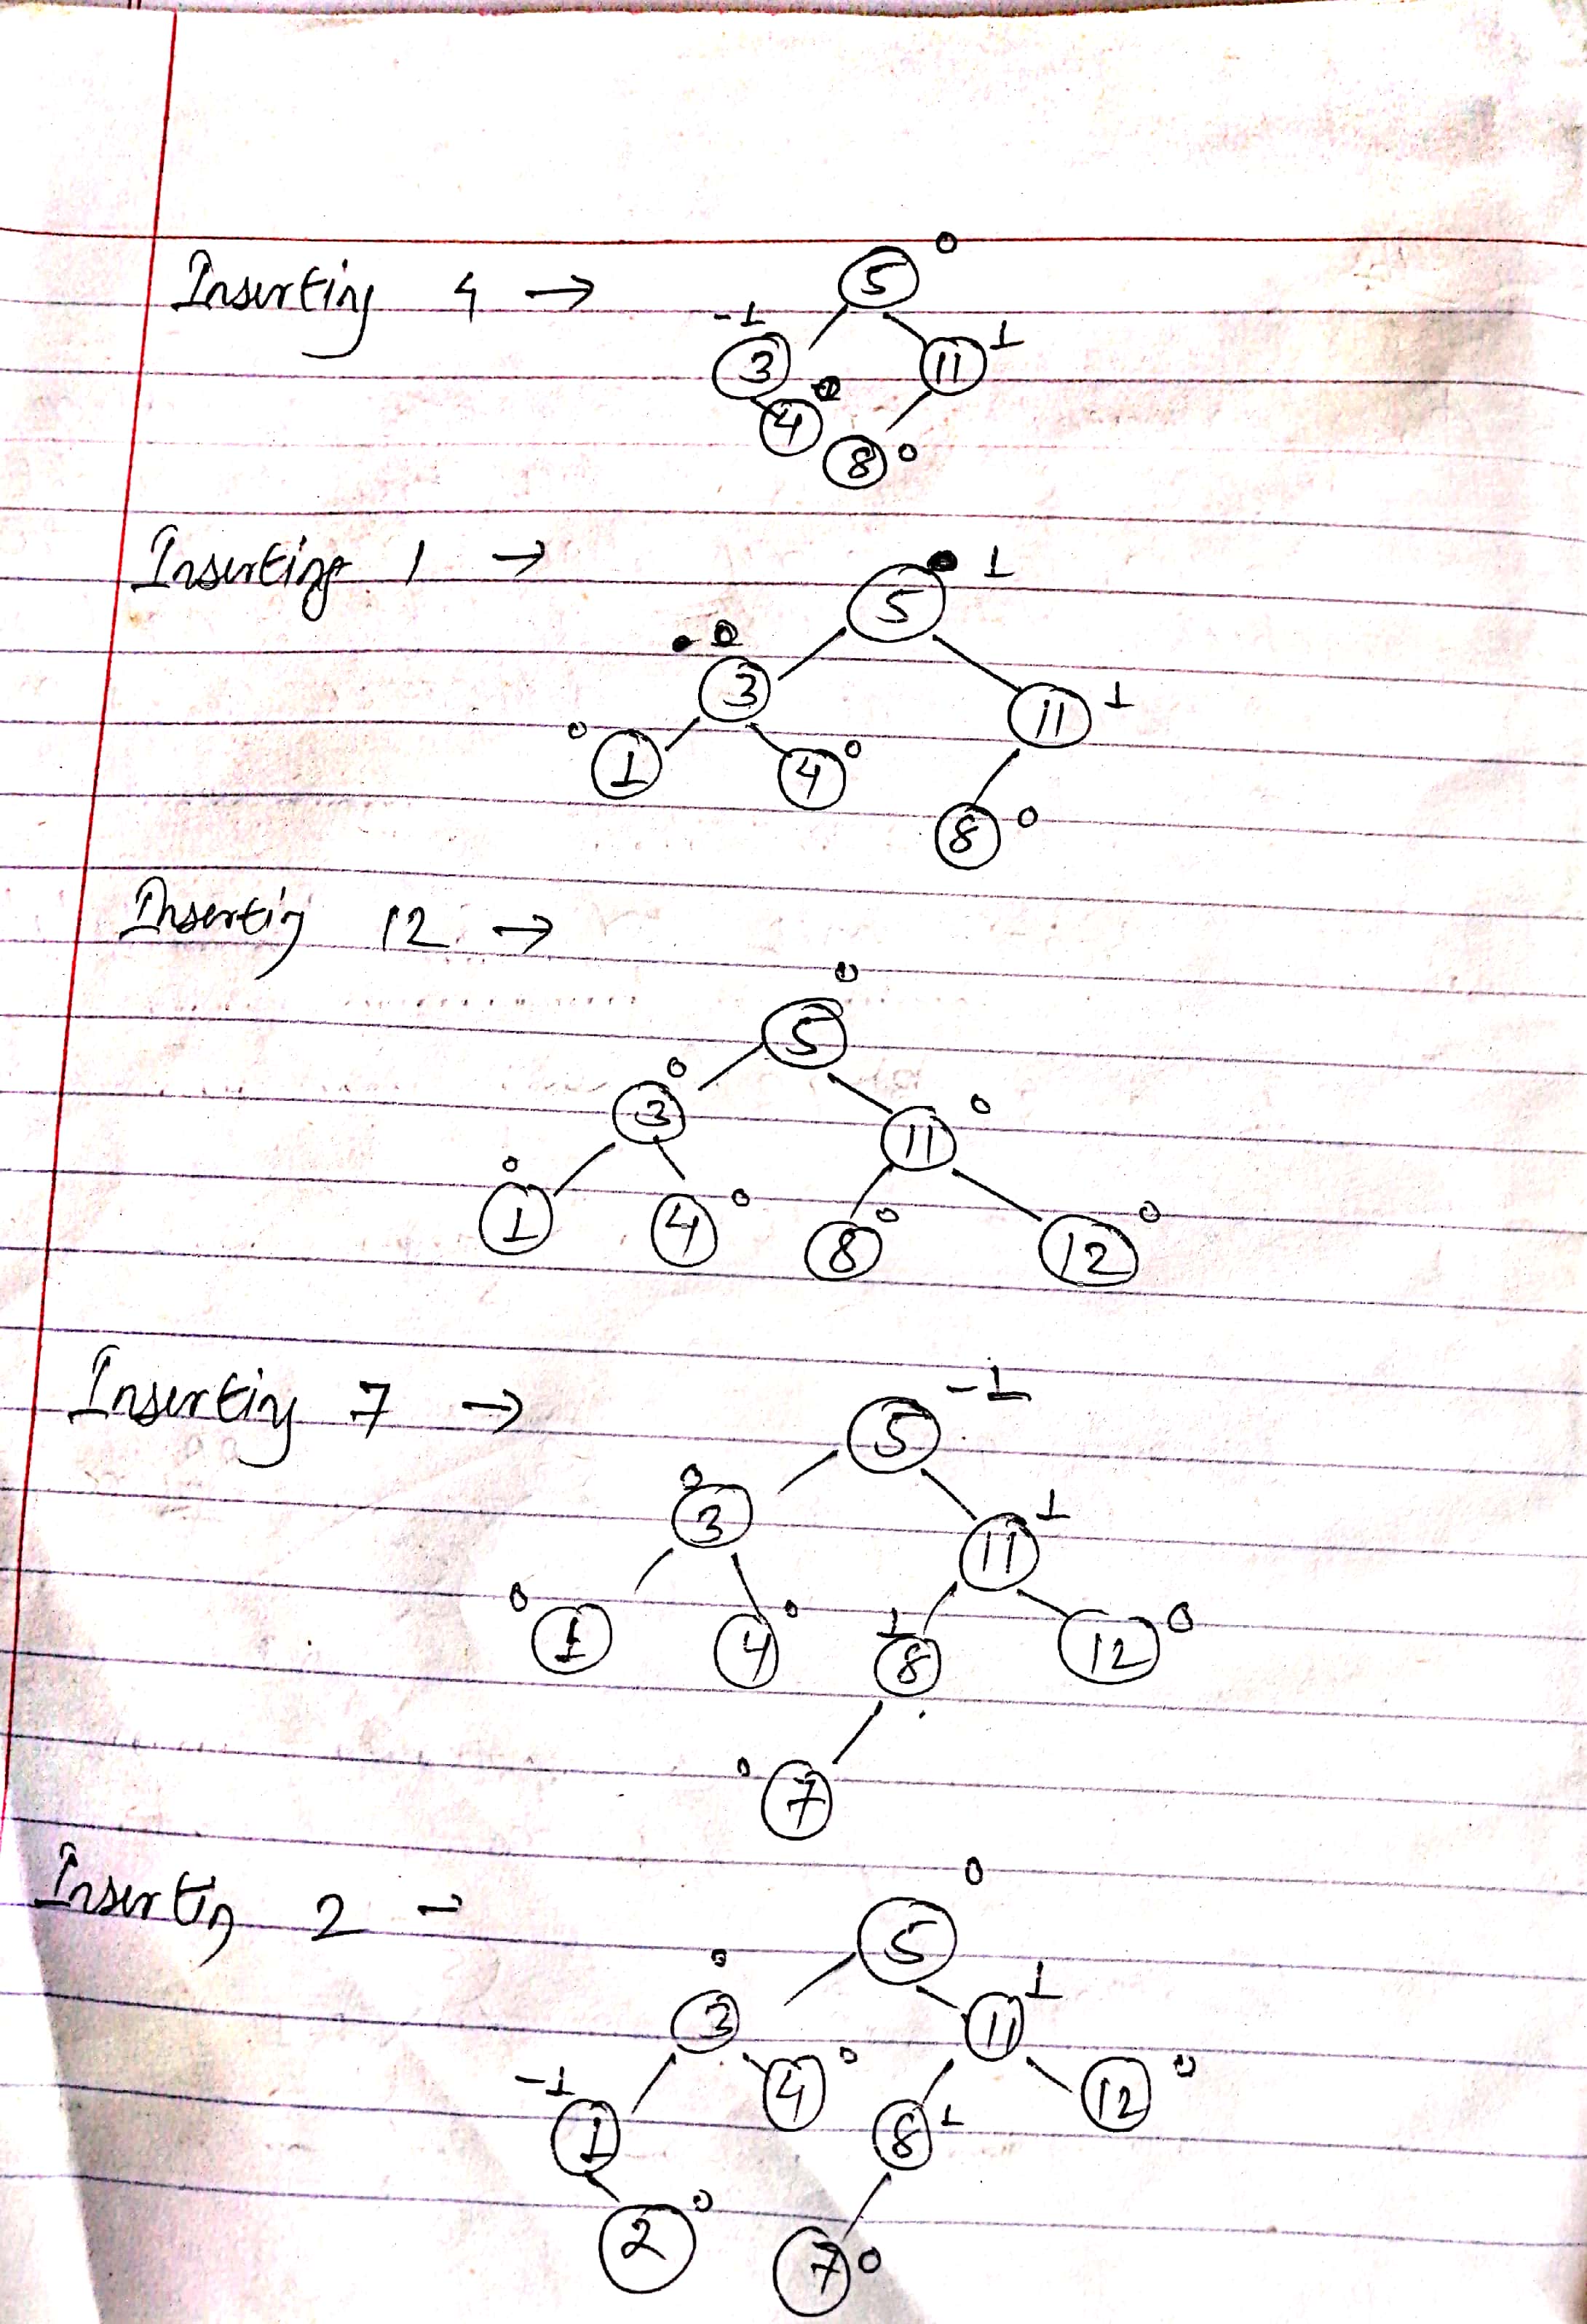 Inserting 4 →
0
5
-1
3
11
1
4
8
0
Inserting 1 →
1
5
0
3
11
1
0
1
4
0
8
0
Inserting 12 →
0
5
0
3
11
0
0
1
4
0
8
0
12
0
Inserting 7 →
-1
5
0
3
11
1
0
1
4
0
1
8
12
0
0
7
Inserting 2 →
0
5
0
3
11
1
-1
1
4
0
8
1
12
0
2
0
7
0